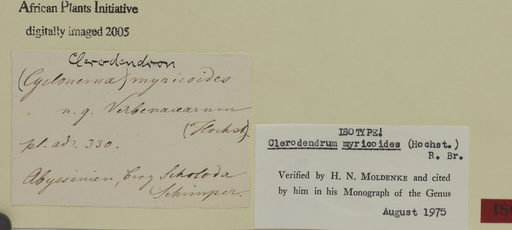 African Plants Initiative
digitally imaged 2005
Clerodendron
(Cyclonema) myricoides
n. g. Verbenacearum
(Hochst).
pl. adr. 330.
Abyssinien, Berg Scholoda
Schimper.
ISOTYPE!
Clerodendrum myricoides (Hochst.)
R. Br.
Verified by H. N. MOLDENKE and cited
by him in his Monograph of the Genus
August 1975